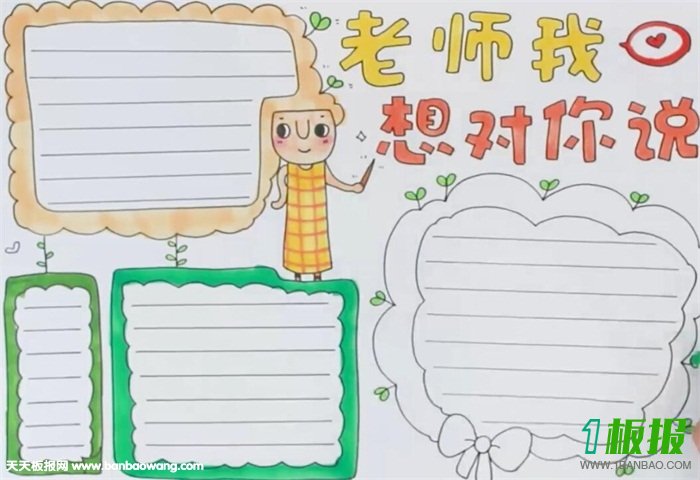 老师我
想对你说
1板报
WWW.1BANBAO.COM
天天板报网 www.banbaowang.com